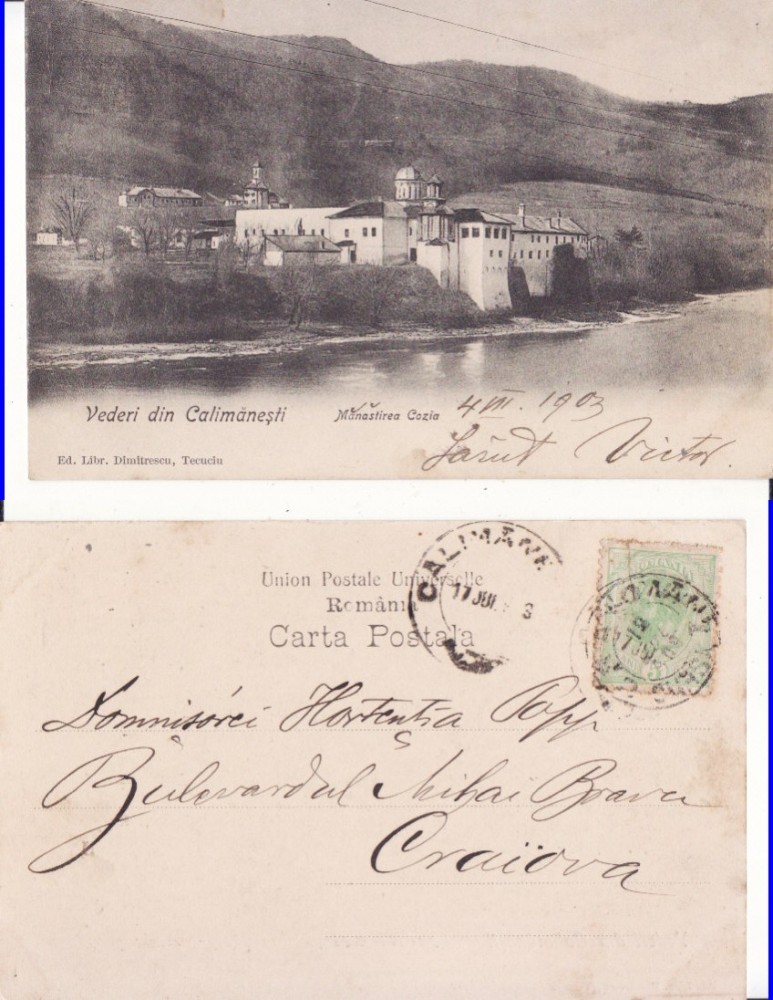 Vederi din Calimănești
Mănăstirea Cozia
4 VII. 1903
Sărut Victor.
Ed. Libr. Dimitrescu, Tecuciu
Union Postale Universelle
România
Carta Postala
CALIMĂNE
17 JUL 3
17 JUL
Domnisórei Hortentia Popp
Bulevardul Mihai Bravu
Craïova